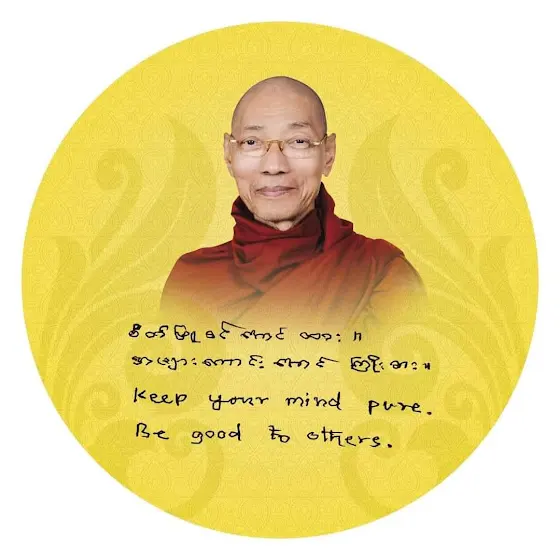 စိတ်ဖြူစင်အောင်ထား။
အများကောင်းအောင်ကြိုးစား။
Keep your mind pure.
Be good to others.